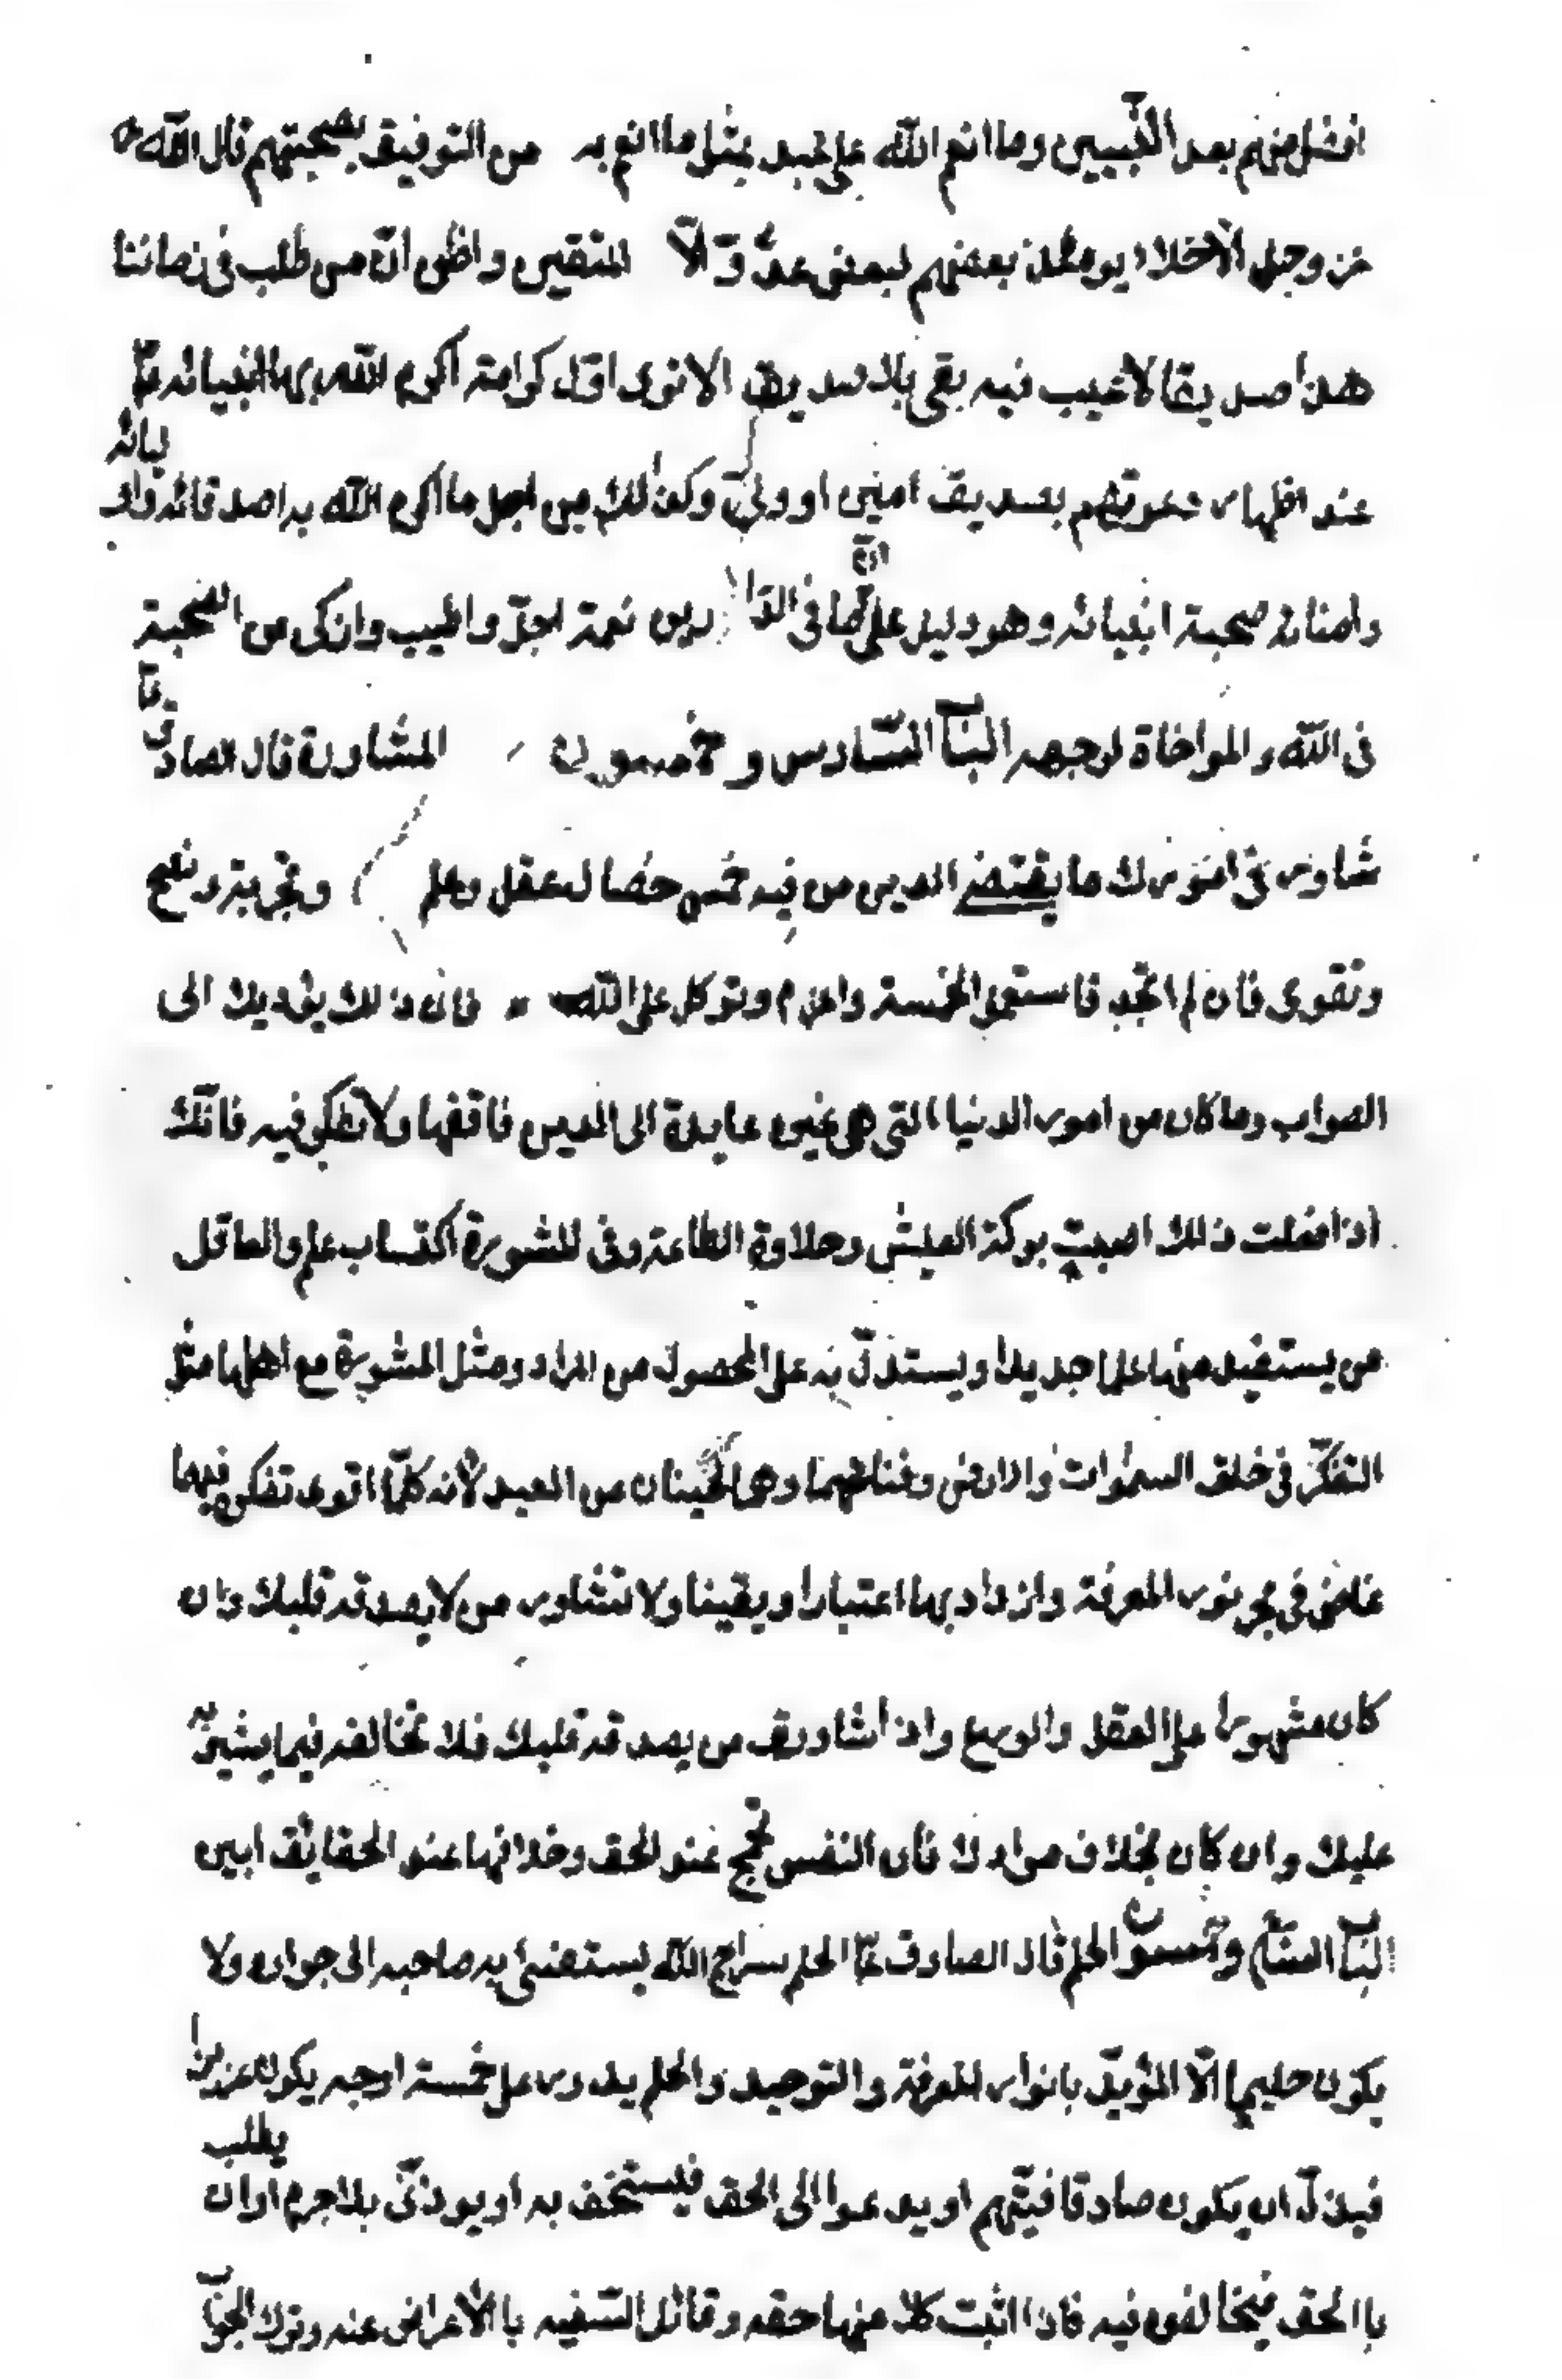 افضل منهم بعد النبيين وما انعم الله على عبد بمثل ما انعم به من التوفيق بصحبتهم قال الله
عز وجل الأخلاء يومئذ بعضهم لبعض عدوّ الّا المتقين واظن انّ من طلب في زماننا
هذا صديقا لا عيب فيه بقى بلا صديق الا ترى اوّل كرامة اكرم الله بها انبيائه
عند اظهار دعوتهم بصديق امين او وليّ وكذلك من اجل ما اكرم الله به اصدقائه واوليائه
وامنائه صحبة انبيائه وهو دليل على انّ ما في الدارين نعمة اجلّ واطيب وازكى من الصحبة
في الله والمواخاة لوجهه الباب السادس وخمسون المشاورة قال الصادق ع
شاور في امورك ما يقتضى الدين من فيه خمس خصال عقل وعلم وتجربة ونصح
وتقوى فان لم تجد فاستعمل الخمسة واعزم وتوكل على الله فان ذلك يؤديك الى
الصواب وما كان من امور الدنيا التي هي غير عايدة الى الدين فاقضها ولا تتفكر فيه فانّك
اذا فعلت ذلك اصبت بركة العيش وحلاوة الطاعة وفي المشورة اكتساب علم والعاقل
من يستفيد منها علما جديدا ويستدلّ به على المحصول من المراد ومثل المشورة مع اهلها مثل
التفكّر في خلق السموات والارض وفنائهما وهما غيبان من العبد لأنه كلّما اقوى تفكره فيهما
غاض في بحر نور المعرفة وازداد بهما اعتبارا ويقينا ولا تشاور من لا يصدقه قلبك وان
كان مشهورا على العقل والورع واذا شاورت من يصدقه قلبك فلا تخالفه فيما يشير به
عليك وان كان بخلاف مرادك فان النفس تجمح عند الحق وخلافها عند الحقايق ابين
الباب وخمسون الحلم قال الصادق ع الحلم سراج الله يستضئ به صاحبه الى جواره ولا
يكون حليما الّا المؤيّد بانوار المعرفة والتوحيد والحلم يدور على خمسة اوجه يكون عزيزا
فيذلّ ان يكون صادقا فيتّهم او يدعوا الى الحق فيستخف به او يوذىّ بلا جرم او ان يطلب
با الحق فيخالفون فيه فاذا اثبت كلا منها حقه وقائل السّفيه با الأعراض عنه وترك الجواب